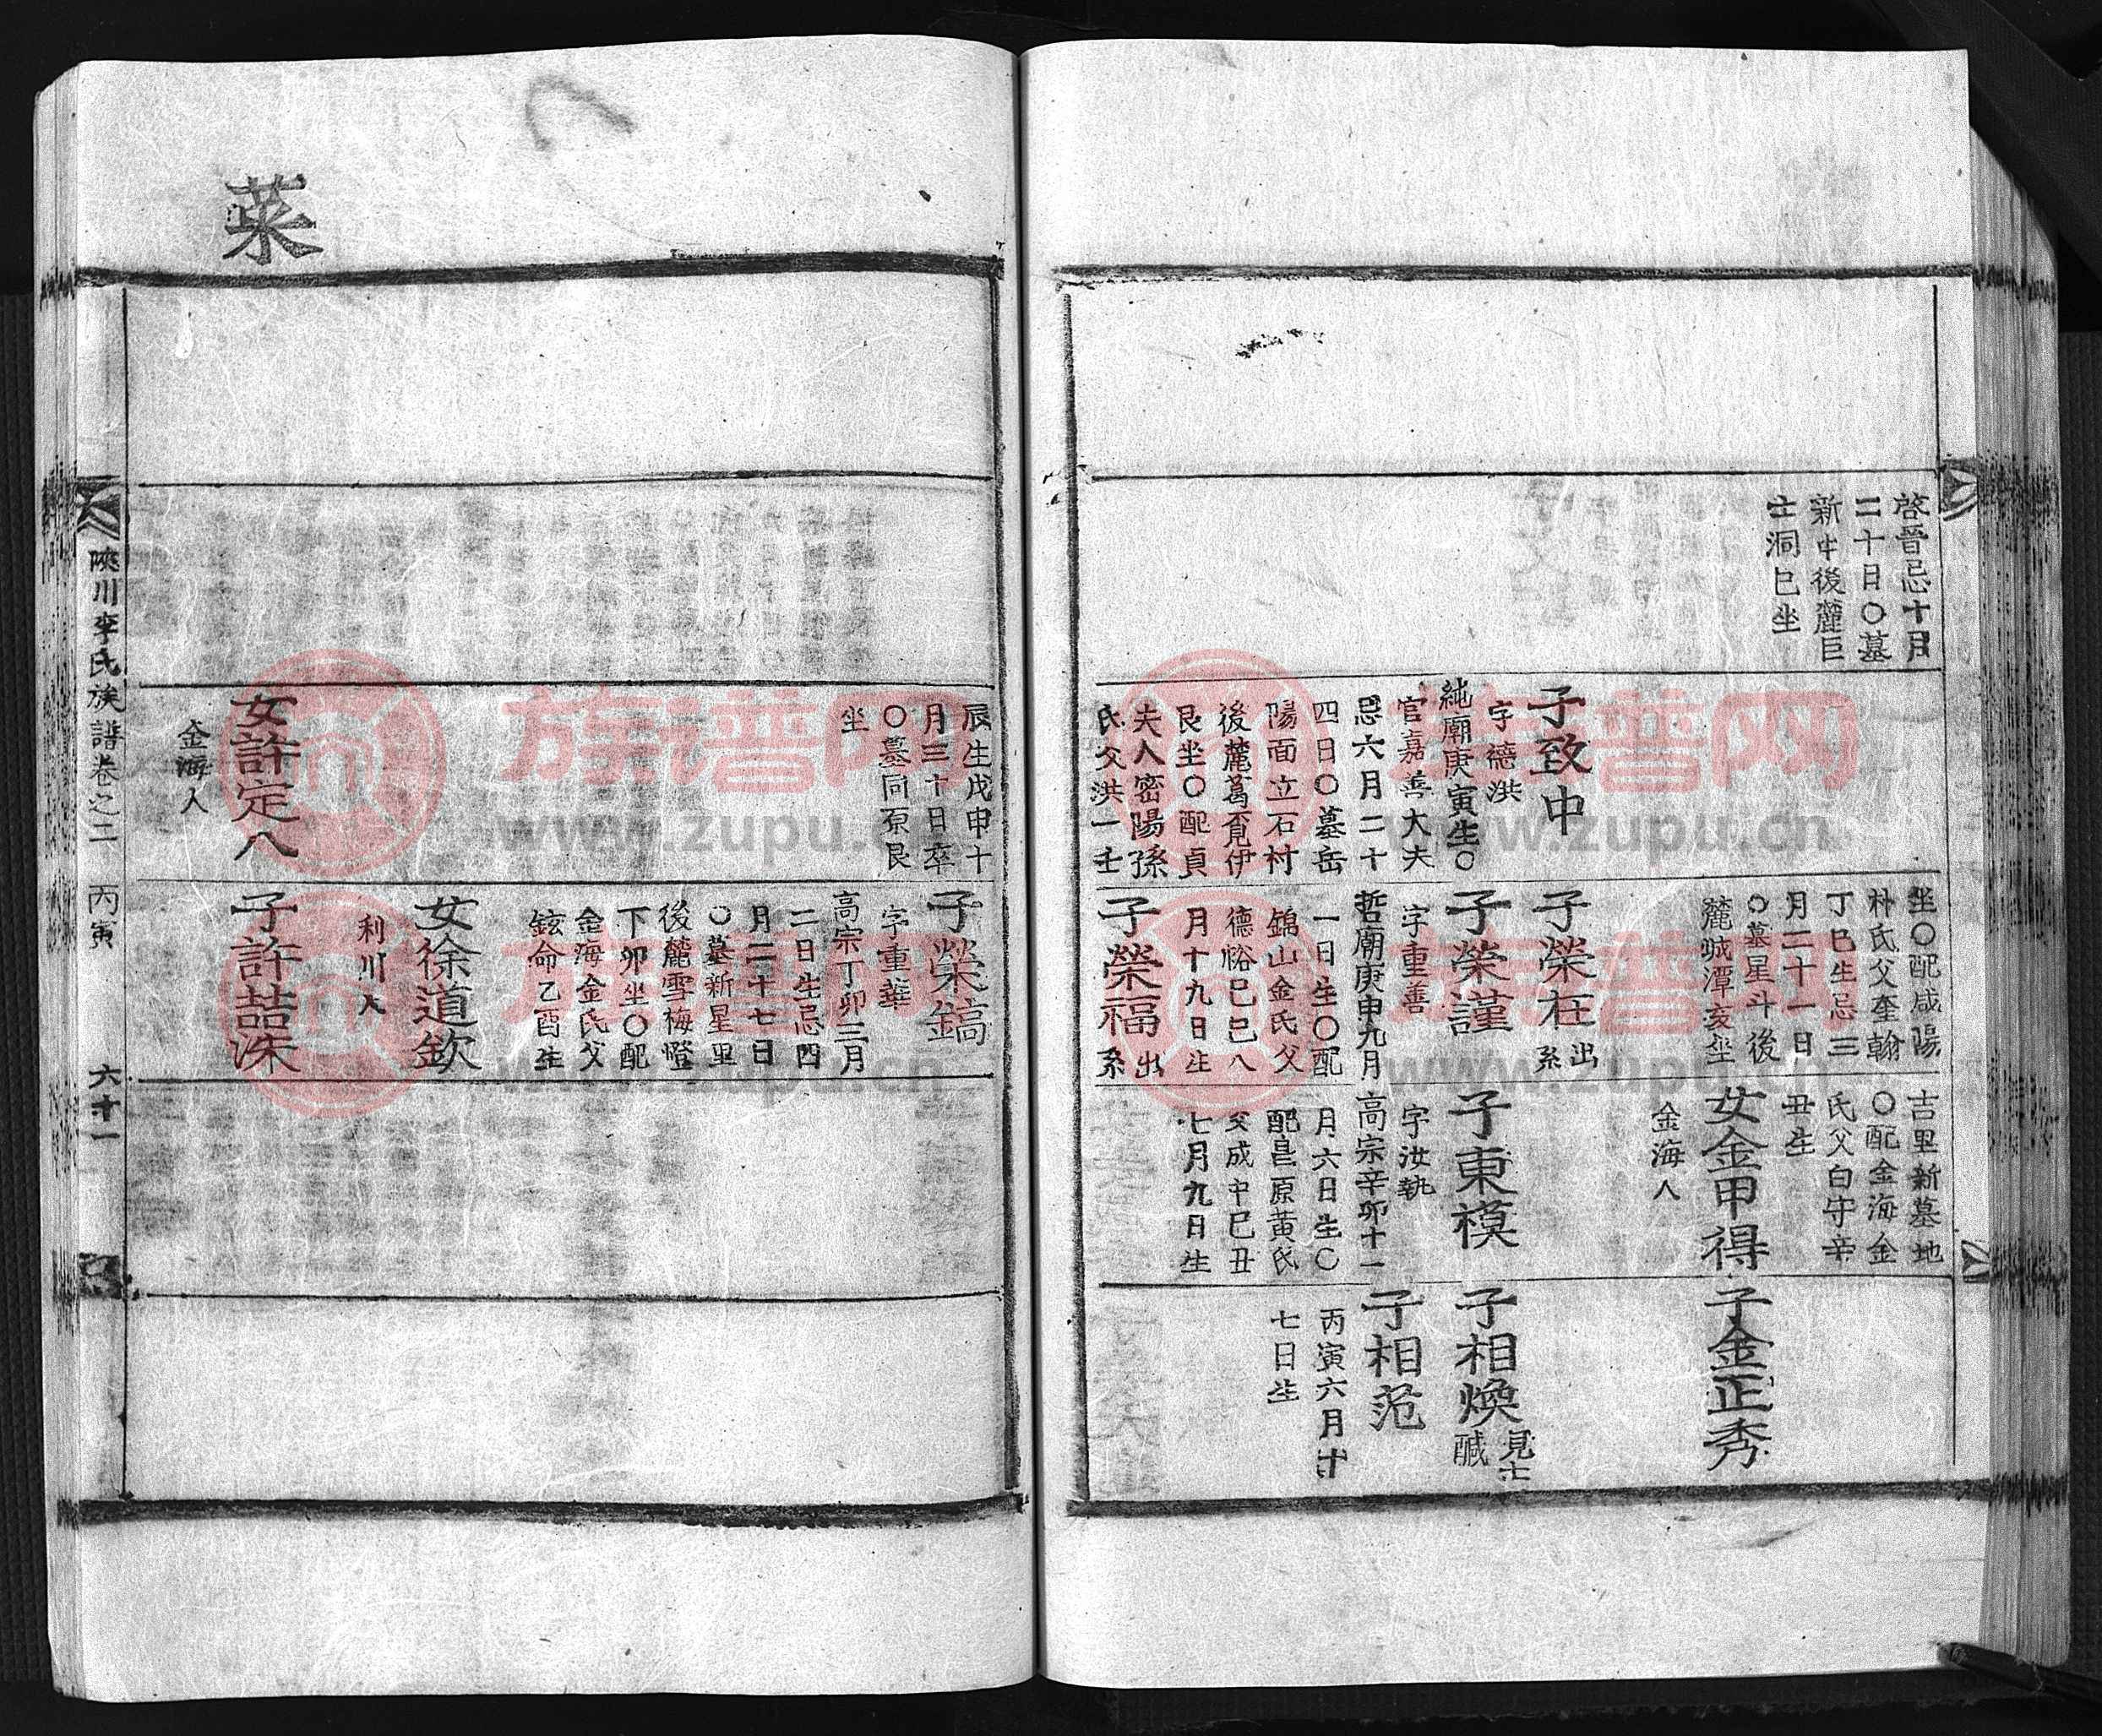 啓晋忌十月
二十日〇墓
新中後麓巨
士洞巳坐
子致中
字德洪
純廟庚寅生〇
官嘉善大夫
忌六月二十
四日〇墓岳
陽面立石村
後麓葛覓伊
艮坐〇配貞
夫人密陽孫
氏父洪一壬
坐〇配咸陽
朴氏父奎翰
丁巳生忌三
月二十一日
〇墓星斗後
麓城潭亥坐
子榮在
出
系
子榮謹
字重善
哲廟庚申九月
一日生〇配
錦山金氏父
德裕己巳八
月十九日生
子榮福
出
系
吉里新墓地
〇配金海金
氏父白守辛
丑生
女金甲得
金海人
子東模
字汝執
高宗辛卯十一
月六日生〇
配昌原黃氏
父成中己丑
七月九日生
子金正秀
子相煥
見士
醎
子相范
丙寅六月十
七日生
辰生戊申十
月三十日卒
〇墓同原艮
坐
女許定八
金海人
子榮鎬
字重華
高宗丁卯三月
二日生忌四
月二十七日
〇墓新星里
後麓雪梅燈
下卯坐〇配
金海金氏父
鉉命乙酉生
女徐道欽
利川人
子許喆洙
菜
陜川李氏族譜卷之二 丙寅 六十一
族谱网
www.zupu.cn
族谱网
www.zupu.cn
族谱网
www.zupu.cn
族谱网
www.zupu.cn